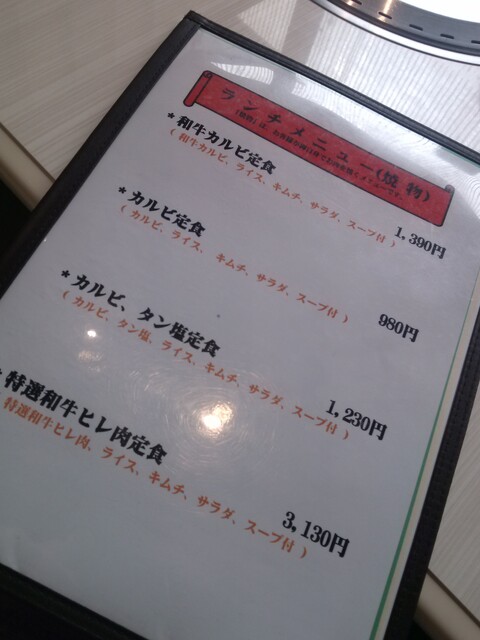 ランチメニュー(焼 物)
「焼物」は、お客様が御自身でお肉を焼くメニューです。
* 和牛カルビ定食
( 和牛カルビ、ライス、キムチ、サラダ、スープ付 )
1,390円
* カルビ定食
( カルビ、ライス、キムチ、サラダ、スープ付 )
980円
* カルビ、タン塩定食
( カルビ、タン塩、ライス、キムチ、サラダ、スープ付 )
1,230円
* 特選和牛ヒレ肉定食
特選和牛ヒレ肉、ライス、キムチ、サラダ、スープ付 )
3,130円